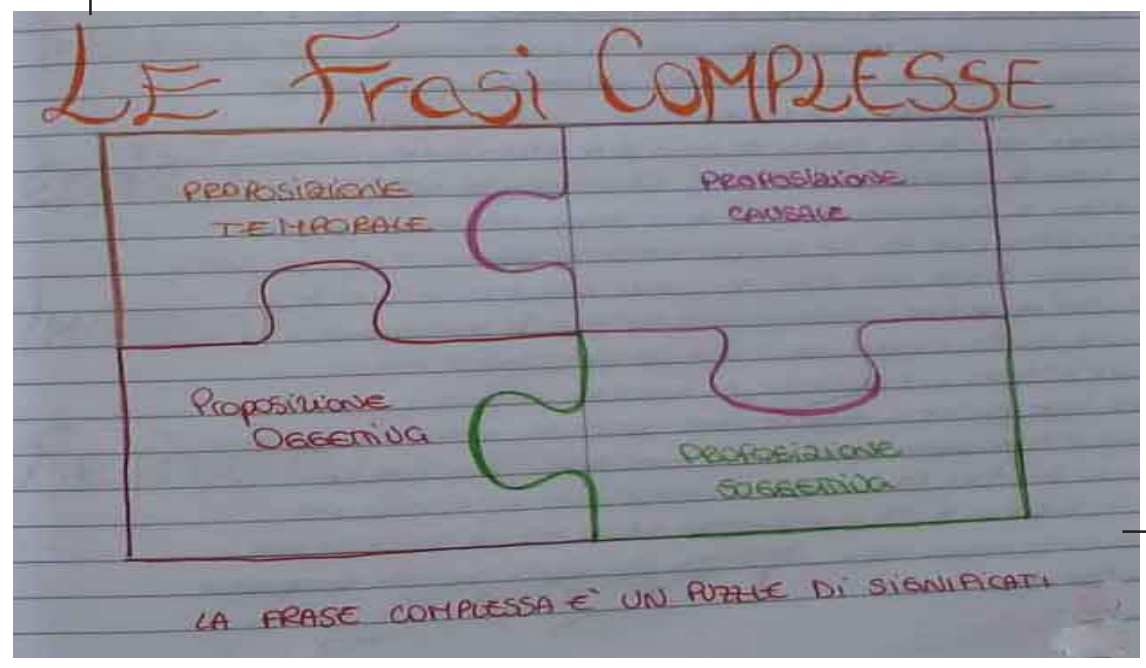 LE Frasi COMPLESSE
PROPOSIZIONE
TEMPORALE
PROPOSIZIONE
CAUSALE
Proposizione
OGGETTIVA
PROPOSIZIONE
SOGGETTIVA
LA FRASE COMPLESSA E' UN PUZZLE Di SIGNIFICATI